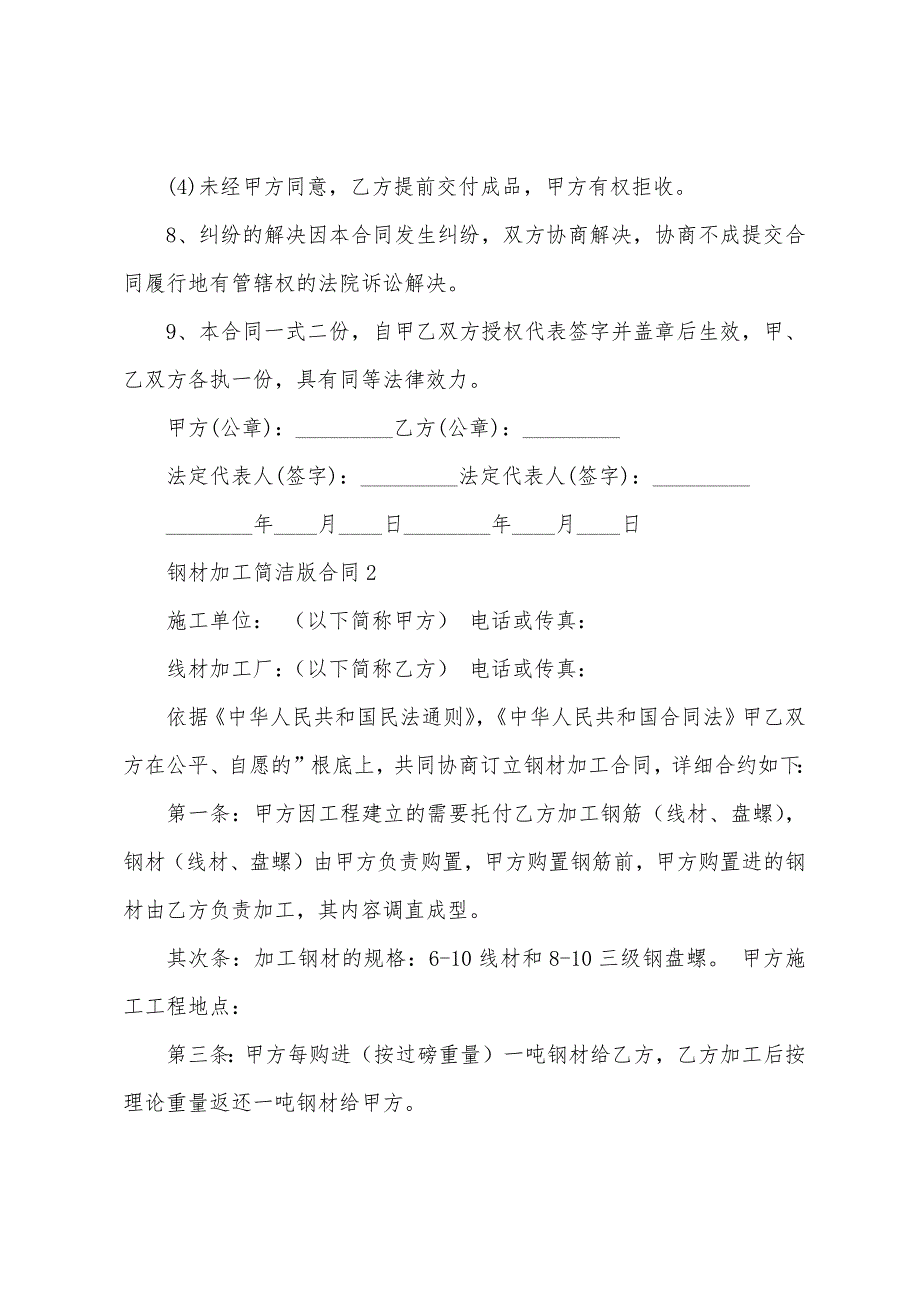 (4)未经甲方同意，乙方提前交付成品，甲方有权拒收。
8、纠纷的解决因本合同发生纠纷，双方协商解决，协商不成提交合
同履行地有管辖权的法院诉讼解决。
9、本合同一式二份，自甲乙双方授权代表签字并盖章后生效，甲、
乙双方各执一份，具有同等法律效力。
甲方(公章)：_________乙方(公章)：_________
法定代表人(签字)：_________法定代表人(签字)：_________
________年____月____日________年____月____日
钢材加工简洁版合同2
施工单位： （以下简称甲方） 电话或传真：
线材加工厂：（以下简称乙方） 电话或传真：
依据《中华人民共和国民法通则》，《中华人民共和国合同法》甲乙双
方在公平、自愿的”根底上，共同协商订立钢材加工合同，详细合约如下：
第一条：甲方因工程建立的需要托付乙方加工钢筋（线材、盘螺），
钢材（线材、盘螺）由甲方负责购置，甲方购置钢筋前，甲方购置进的钢
材由乙方负责加工，其内容调直成型。
其次条：加工钢材的规格：6-10线材和8-10三级钢盘螺。 甲方施
工工程地点：
第三条：甲方每购进（按过磅重量）一吨钢材给乙方，乙方加工后按
理论重量返还一吨钢材给甲方。